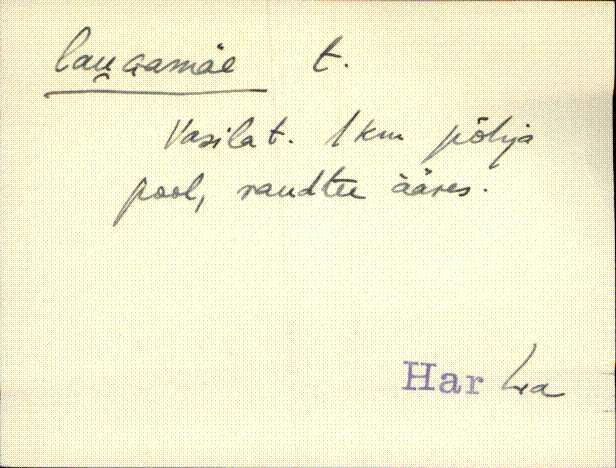 laugamäe t.
Vasila t. 1 km põhja
pool, raudtee ääres.
Har